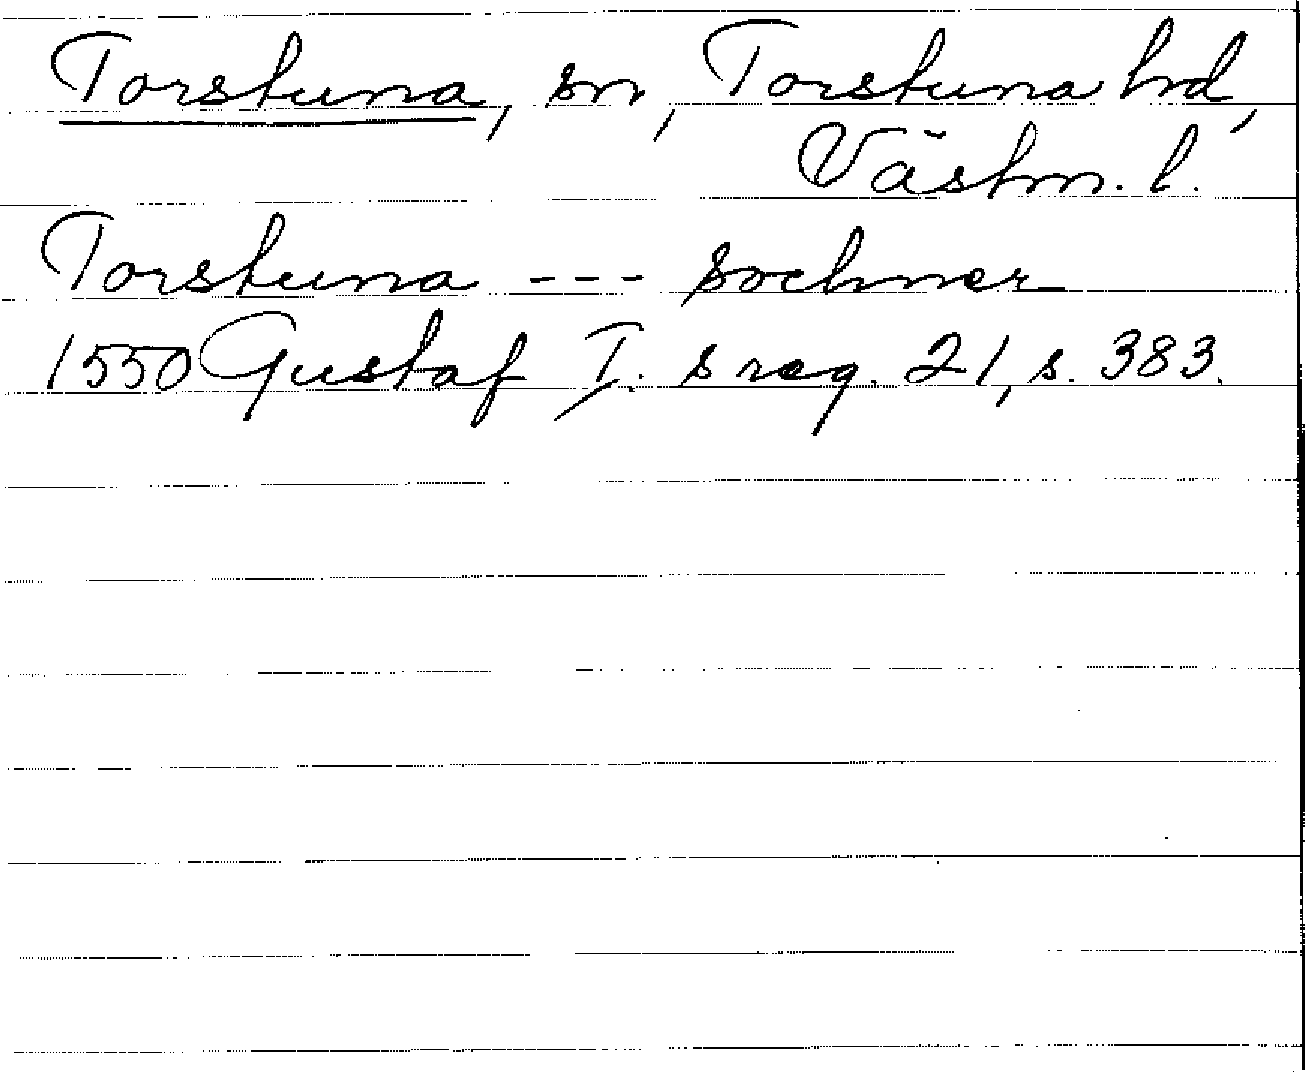 Torstuna, sn, Torstuna hd,
Västm. l.
Torstuna --- sochner
1550 Gustaf I. s reg. 21, s. 383.